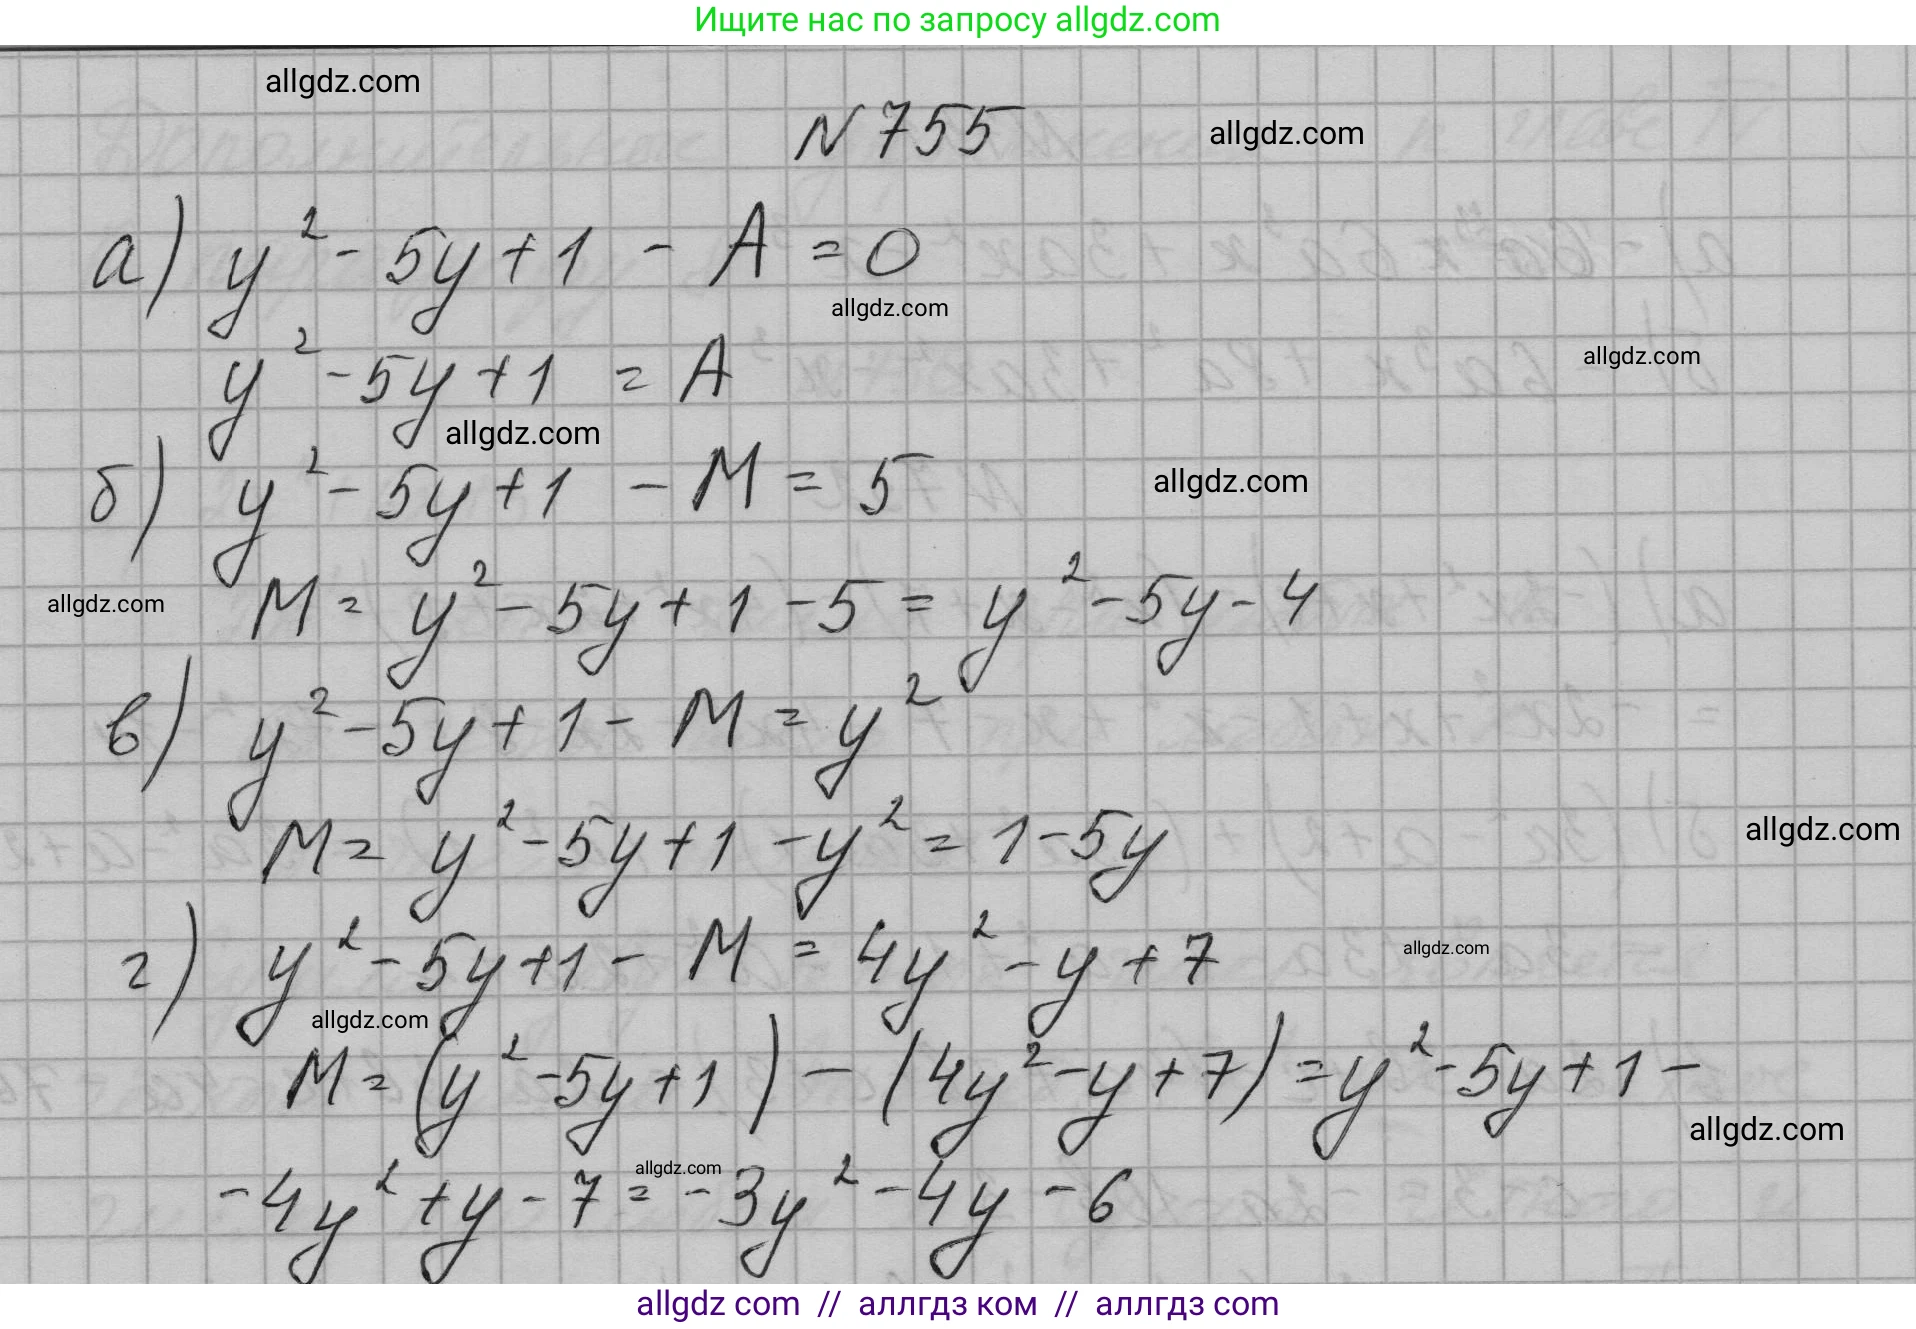 Ищите нас по запросу allgdz.com
allgdz.com
N 755
allgdz.com
а) y² - 5y + 1 - A = 0
allgdz.com
y² - 5y + 1 = A
allgdz.com
allgdz.com
б) y² - 5y + 1 - M = 5
allgdz.com
M = y² - 5y + 1 - 5 = y² - 5y - 4
allgdz.com
в) y² - 5y + 1 - M = y²
M = y² - 5y + 1 - y² = 1 - 5y
allgdz.com
г) y² - 5y + 1 - M = 4y² - y + 7
allgdz.com
allgdz.com
M = (y² - 5y + 1) - (4y² - y + 7) = y² - 5y + 1 -
allgdz.com
- 4y² + y - 7 = - 3y² - 4y - 6
allgdz.com
allgdz com // аллгдз ком // аллгдз com